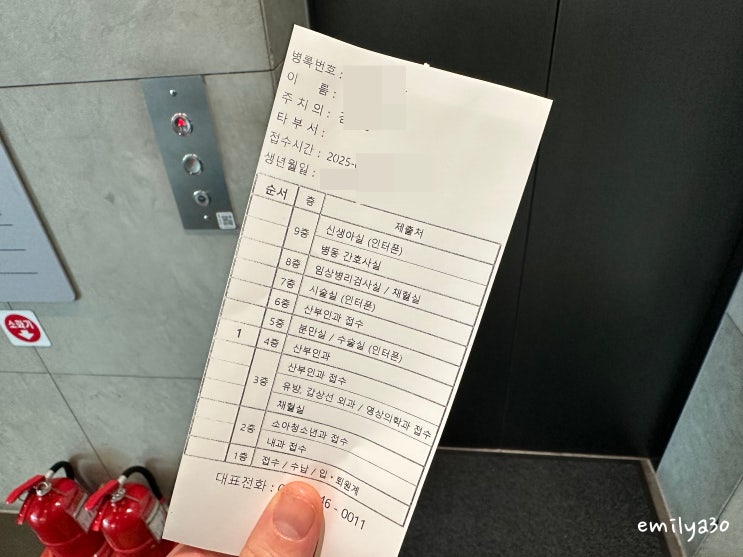 병록번호 :
이 름 :
주 치 의 :
타 부 서 :
접수시간 : 2025-
생년월일 :
순서 층 제출처
9층 신생아실 (인터폰)
병동 간호사실
8층 임상병리검사실 / 채혈실
7층 시술실 (인터폰)
6층 산부인과 접수
1 5층 분만실 / 수술실 (인터폰)
4층 산부인과
3층 산부인과 접수
유방, 갑상선 외과 / 영상의학과 접수
채혈실
2층 소아청소년과 접수
내과 접수
1층 접수 / 수납 / 입 · 퇴원계
대표전화 : 46 - 0011
소화기
emilya30